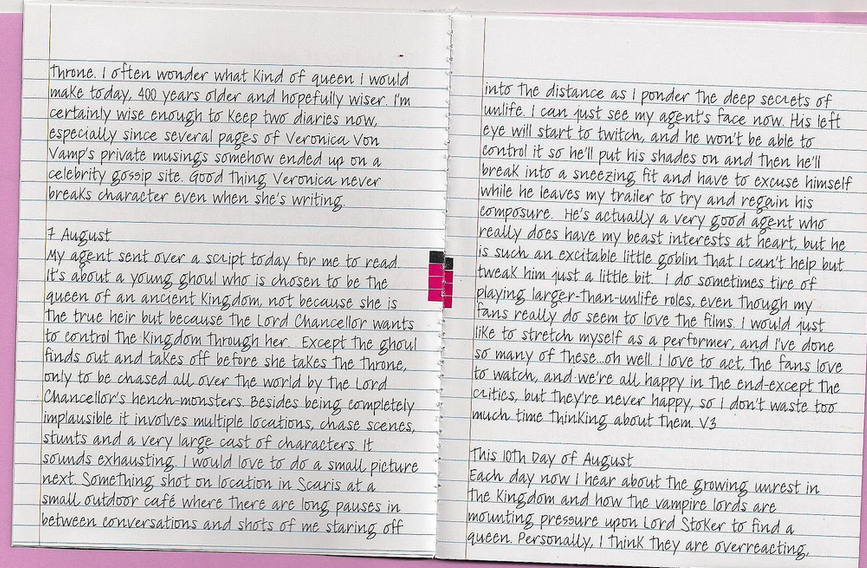 throne. I often wonder what kind of queen I would
make today, 400 years older and hopefully wiser. I'm
certainly wise enough to keep two diaries now,
especially since several pages of Veronica Von
Vamp's private musings somehow ended up on a
celebrity gossip site. Good thing Veronica never
breaks character even when she's writing.
7 August
My agent sent over a script today for me to read.
It's about a young ghoul who is chosen to be the
queen of an ancient kingdom, not because she is
the true heir but because the Lord Chancellor wants
to control the kingdom through her. Except the ghoul
finds out and takes off before she takes the throne,
only to be chased all over the world by the Lord
Chancellor's hench-monsters. Besides being completely
implausible it involves multiple locations, chase scenes,
stunts and a very large cast of characters. It
sounds exhausting. I would love to do a small picture
next. Something shot on location in Scaris at a
small outdoor café where there are long pauses in
between conversations and shots of me staring off
into the distance as I ponder the deep secrets of
unlife. I can just see my agent's face now. His left
eye will start to twitch, and he won't be able to
control it so he'll put his shades on and then he'll
break into a sneezing fit and have to excuse himself
while he leaves my trailer to try and regain his
composure. He's actually a very good agent who
really does have my beast interests at heart, but he
is such an excitable little goblin that I can't help but
tweak him just a little bit. I do sometimes tire of
playing larger-than-unlife roles, even though my
fans really do seem to love the films. I would just
like to stretch myself as a performer, and I've done
so many of these...oh well. I love to act, the fans love
to watch, and we're all happy in the end-except the
critics, but they're never happy, so I don't waste too
much time thinking about them. V3
This 10th Day of August
Each day now I hear about the growing unrest in
the kingdom and how the vampire lords are
mounting pressure upon Lord Stoker to find a
queen. Personally, I think they are overreacting,